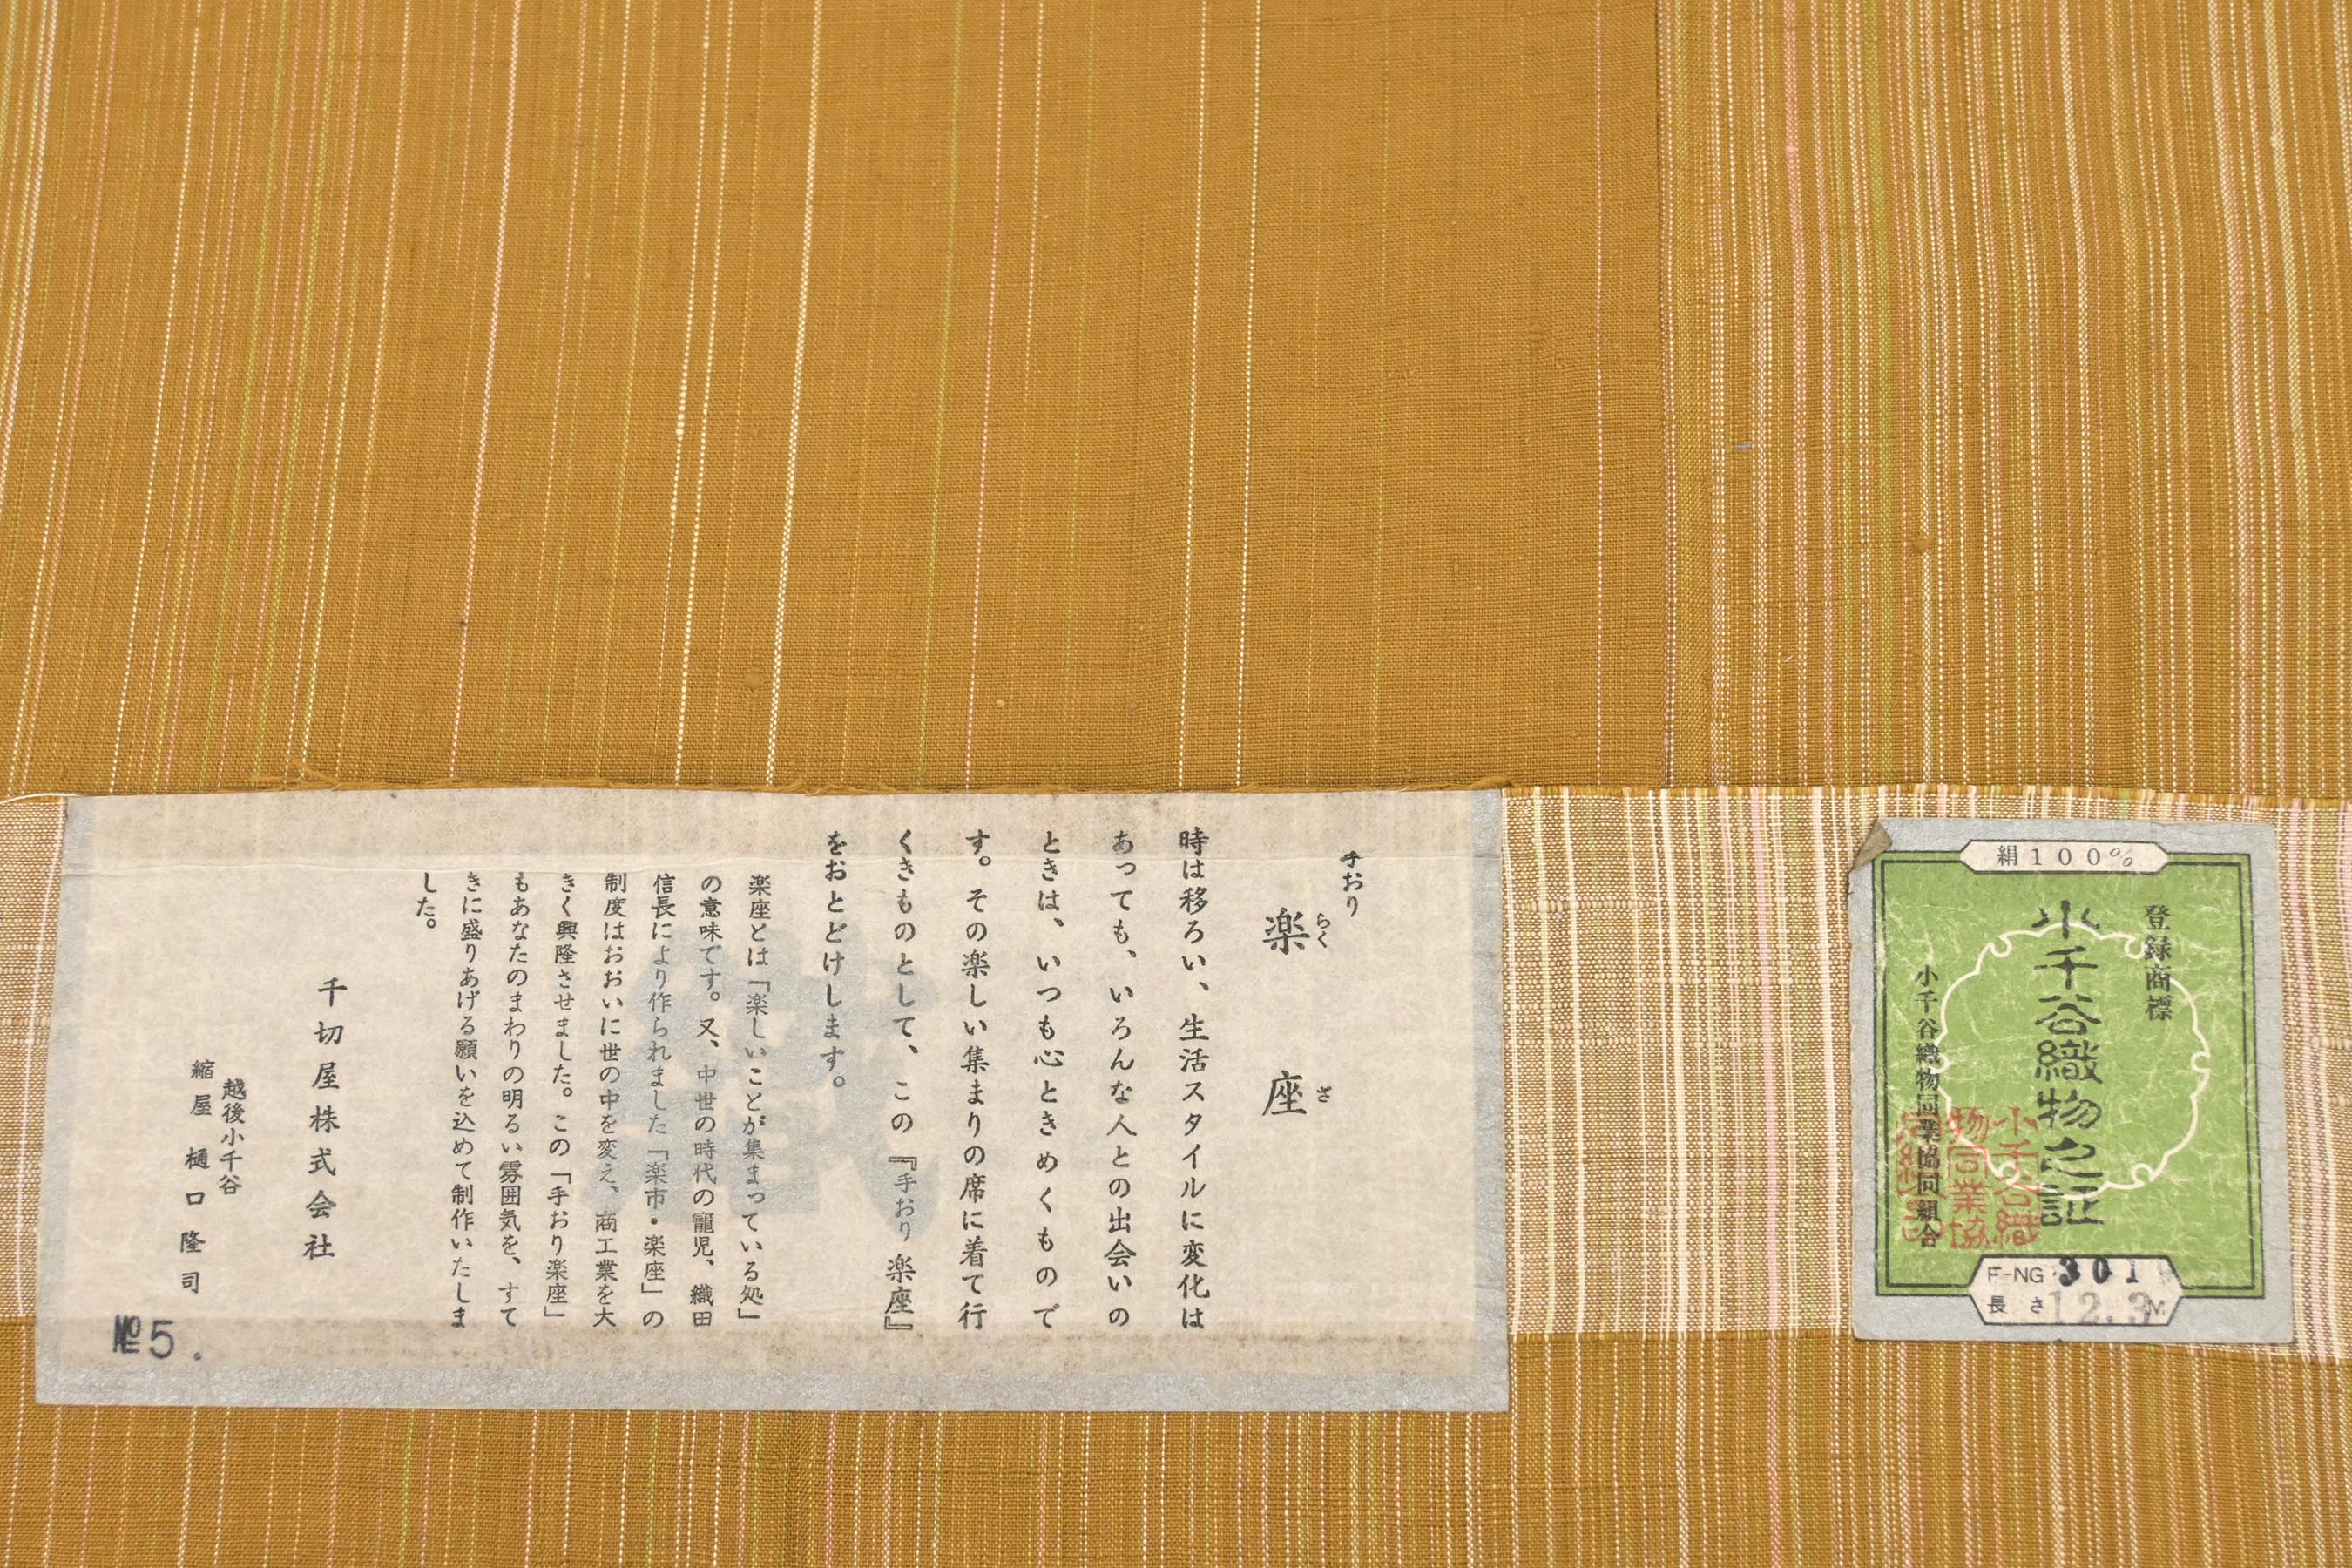 手おり
楽座
らくさ
時は移ろい、生活スタイルに変化は
あっても、いろんな人との出会いの
ときは、いつも心ときめくもので
す。その楽しい集まりの席に着て行
くきものとして、この『手おり楽座』
をおとどけします。
楽座とは「楽しいことが集まっている処」
の意味です。又、中世の時代の寵児、織田
信長により作られました「楽市・楽座」の
制度はおおいに世の中を変え、商工業を大
きく興隆させました。この「手おり楽座」
もあなたのまわりの明るい雰囲気を、すて
きに盛りあげる願いを込めて制作いたしま
した。
千切屋株式会社
越後小千谷
縮屋 樋口隆司
№5.
絹100%
登録商標
小千谷織物之証
小千谷織物同業協同組合
F-NG 301
長さ12.3M